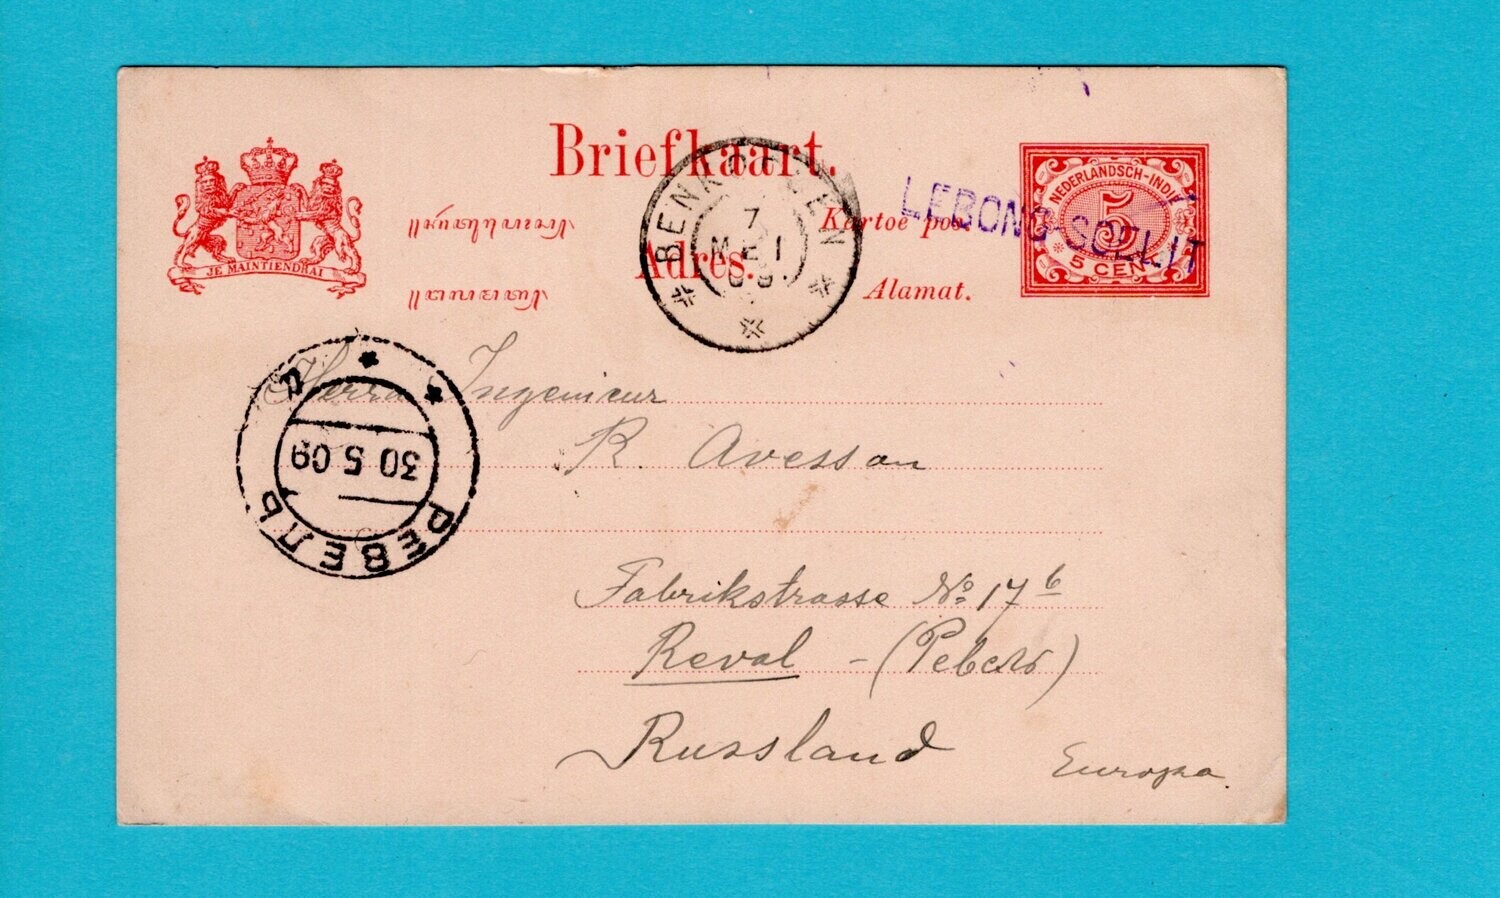 Briefkaart.
JE MAINTIENDRAI
Kartoe pos
Adres.
Alamat.
NEDERLANDSCH-INDIË
5
5 CENT
LEBONG-SOELIT
BENKOELEN
7
MEI
09
РЕВЕЛЬ
30 5 09
Herrn Ingenieur
R. Avesson
Fabrikstrasse No 17 b
Reval - (Ревель)
Russland
Europa